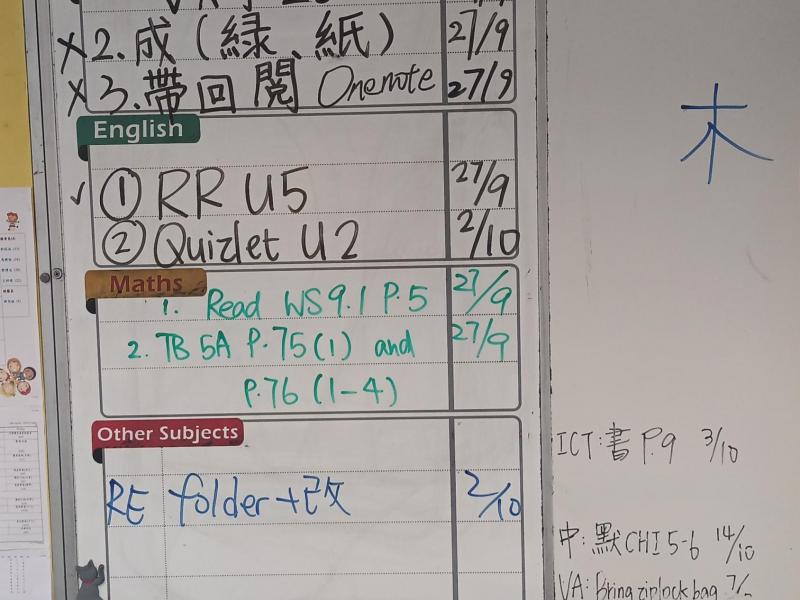 ×2.成(綠、紙) 27/9
×3.帶回閱 Onenote 27/9
English
✓ ① RR U5 27/9
② Quizlet U2 2/10
Maths
1. Read WS 9.1 P.5 27/9
2. TB 5A P.75(1) and 27/9
P.76 (1-4)
Other Subjects
RE folder+改 2/10
木
ICT:書 P.9 3/10
中:默CHI 5-6 14/10
VA: Bring ziplock bag 7/